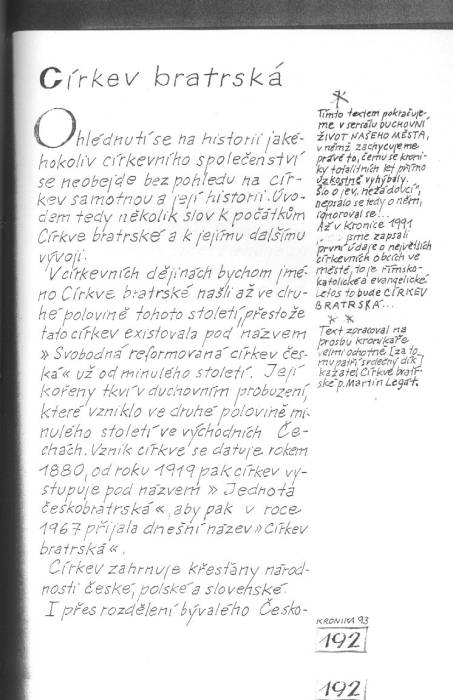 Církev bratrská
Ohlédnutí se na historii jaké-
hokoliv církevního společenství
se neobejde bez pohledu na cír-
kev samotnou a její historii. Úvo-
dem tedy několik slov k počátkům
Církve bratrské a k jejímu dalšímu
vývoji.
V církevních dějinách bychom jmé-
no Církve bratrské našli až ve dru-
hé polovině tohoto století, přestože
tato církev existovala pod názvem
» Svobodná reformovaná církev čes-
ká « už od minulého století. Její
kořeny tkví v duchovním probuzení,
které vzniklo ve druhé polovině mi-
nulého století ve východních Če-
chách. Vznik církve se datuje rokem
1880, od roku 1919 pak církev vy-
stupuje pod názvem » Jednota
českobratrská «, aby pak v roce
1967 přijala dnešní název » Církev
bratrská «.
Církev zahrnuje křesťany národ-
nosti české, polské a slovenské.
I přes rozdělení bývalého Česko-
*
Tímto textem pokračuje-
me v seriálu DUCHOVNÍ
ŽIVOT NAŠEHO MĚSTA,
v němž zachycujeme
právě to, čemu se kroni-
ky totalitních let přímo
úzkostně vyhýbaly.
Šlo o jev, nežádoucí,
nepsalo se tedy o něm,
ignoroval se...
Až v Kronice 1991
jsme zapsali
první údaje o největších
církevních obcích ve
městě, to je římsko-
katolické a evangelické
Letos to bude CÍRKEV
BRATRSKÁ...
* *
Text zpracoval na
prosbu kronikáře
velmi ochotně [za to
mu patří srdečný dík]
kazatel Církve bratr-
ské p. Martin Legát.
KRONIKA 93
192
192